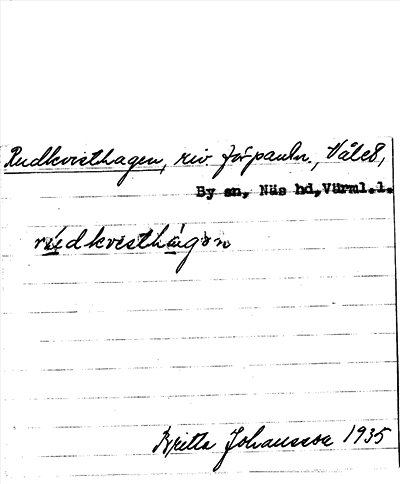 Rudkvisthagen, riv. förpantn., Våle8,
By sn, Näs hd, Värml.l.
rudkvisthagən
Britta Johansson 1935